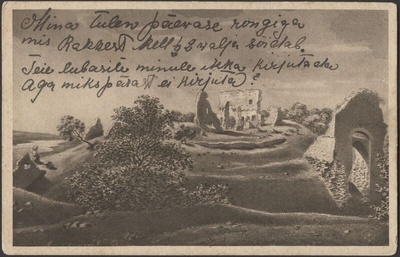 Mina tulen päevase rongiga
mis Rakverest kell 1/2 3 walja soidab,
Teie lubasite minule ikka kirjutada
Aga mikspärast ei kirjuta?